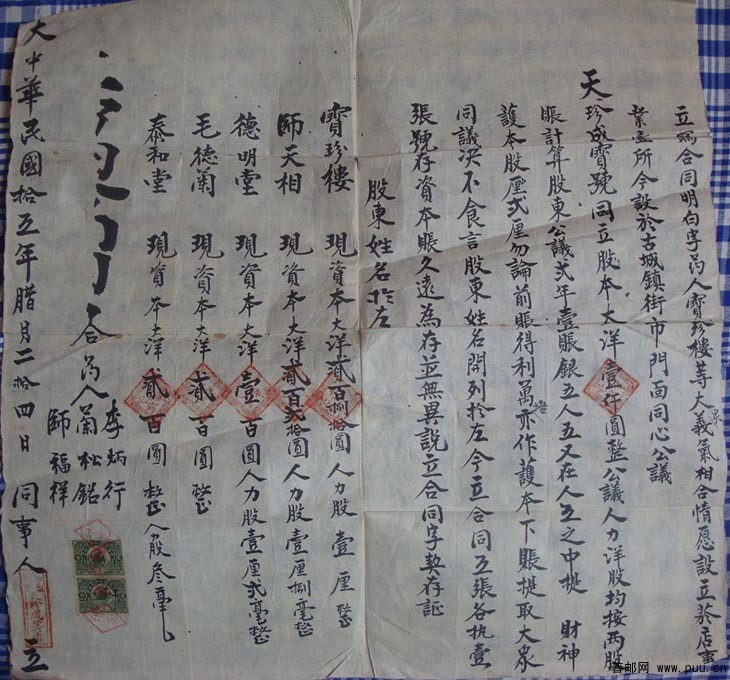 立寫合同明白字葯人寶珍樓等大衆義氣相合情愿設立葯店事
業壹所今設於古城鎮街市門面同心公議
天珍成寶號同立股本大洋壹仟圓整公議人力洋股均按两股
賬計算股東公議弍年壹賬銀五人五又在人五之中提 財神
護本股厘弍厘勿論前賬得利萬亦作護本下賬提取大衆
同議决不食言股東姓名開列於左今立合同五張各执壹
張號存資本賬久遠為存並無異說立合同字契存証
股東姓名於左
寶珍樓 現資本大洋貳百捌拾圓人力股壹厘整
師天相 現資本大洋貳百弍拾圓人力股壹厘捌毫整
德明堂 現資本大洋壹百圓人力股壹厘弍毫整
毛德蘭 現資本大洋貳百圓整
泰和堂 現資本大洋貳百圓整人股叁毫
合葯人
李炳行
蘭松銘
師福祥
大中華民國拾五年腊月二拾四日 同事人 立
香邮网 www.puu.cn